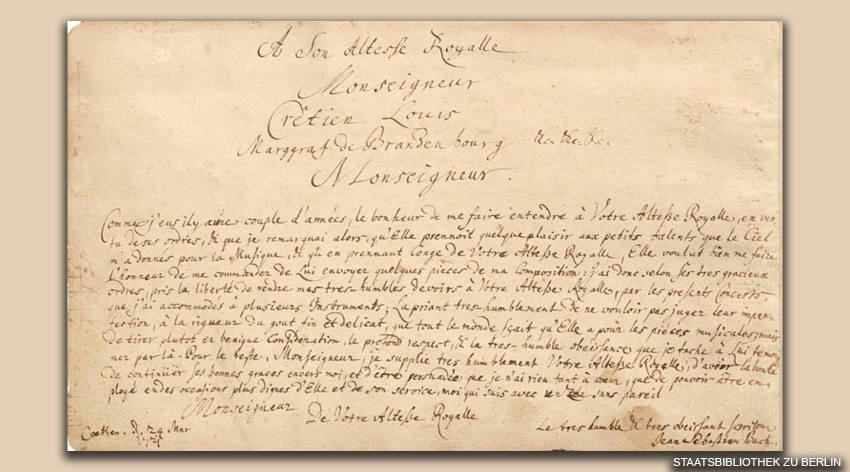 A Son Altesse Royalle
Monseigneur
Crêtien Louis
Marggraf de Brandenbourg &c. &c. &c.
Monseigneur.
Comme j'eus il y a une couple d'années, le bonheur de me faire entendre à Votre Alteße Royalle, en ver-
tu de ses ordres, & que je remarquai alors, qu'Elle prennoit quelque plaisir aux petits talents que le Ciel
m'a donnés pour la Musique, & qu'en prennant Conge de Votre Alteße Royalle, Elle voulut bien me faire
l'honneur de me commander de Lui envoyer quelques pieces de ma Composition: j'ai donc selon ses tres gracieux
ordres, pris la liberté de rendre mes tres-humbles devoirs à Votre Alteße Royalle, par les presents Concerts,
que j'ai accommodés à plusieurs Instruments; La priant tres-humblement de ne vouloir pas juger leur imper-
fection, à la rigueur du gout fin et delicat, que tout le monde sçait qu'Elle a pour les piéces musicales; mais
de tirer plutot en benigne Consideration, le profond respect, & la tres-humble obeissance que je tache à Lui temoi-
ner par là. Pour le reste, Monseigneur, je supplie tres humblement Votre Alteße Royalle, d'avoir la bonté
de continüer ses bonnes graces envers moi, et d'être persuadée que je n'ai rien tant à cœur, que de pouvoir être em-
ployé en des occasions plus dignes d'Elle et de son service, moi qui suis avec un zele sans pareil
Monseigneur
De Votre Alteße Royalle
Coethen. d. 24 Mar
1721
Le tres humble & tres obeissant serviteur
Jean Sebastien Bach.
STAATSBIBLIOTHEK ZU BERLIN